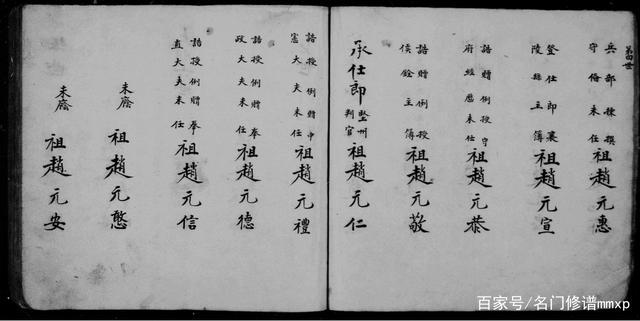 第四世
兵部 揀撰
守 備 未 任
祖趙元惠
登仕郎 襄
陵縣主簿
祖趙元宣
誥贈例授守
府經歷未任
祖趙元恭
誥贈例授
候銓主簿
祖趙元敬
承仕郎
判官
祖趙元仁
誥授例贈中
憲大夫未任
祖趙元禮
誥授例贈奉
政大夫未任
祖趙元德
誥授例贈奉
直大夫未任
祖趙元信
未廕
祖趙元憨
未廕
祖趙元安
百家号/名门修谱mmxp